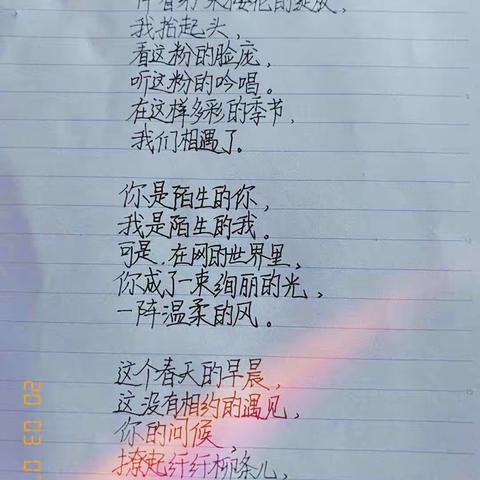 伴着桃木樱花的绽放，
我抬起头，
看这粉的脸庞，
听这粉的吟唱。
在这样多彩的季节，
我们相遇了。
你是陌生的你，
我是陌生的我。
可是，在网的世界里，
你成了一束绚丽的光，
一阵温柔的风。
这个春天的早晨，
这没有相约的遇见，
你的问候，
撩起纤纤柳条儿，
20 03 0